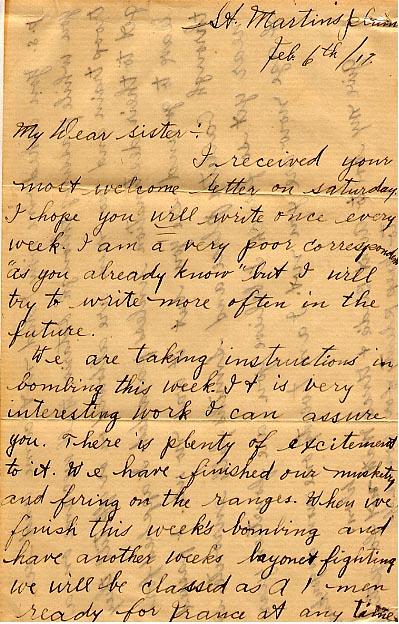 St. Martins Plain
Feb. 6th/17.
My Dear sister:
I received your
most welcome letter on saturday.
I hope you will write once every
week. I am a very poor correspondent
"as you already know" but I will
try to write more often in the
future.
We are taking instructions in
bombing this week. It is very
interesting work I can assure
you. There is plenty of excitement
to it. We have finished our musketry
and firing on the ranges. When we
finish this week's bombing and
have another weeks bayonet fighting
we will be classed as A 1 men
ready for france at any time